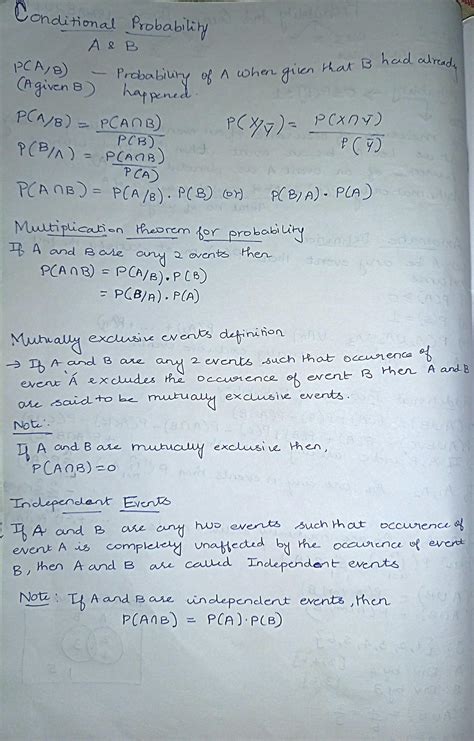 Conditional Probability
A & B
P(A/B) — Probability of A when given that B had already
(A given B) happened.
P(A/B) = P(A∩B) / P(B) P(X/ȳ) = P(X∩ȳ) / P(ȳ)
P(B/A) = P(A∩B) / P(A)
P(A∩B) = P(A/B) . P(B) (or) P(B/A) . P(A)
Multiplication theorem for probability
If A and B are any 2 events then
P(A∩B) = P(A/B) . P(B)
= P(B/A) . P(A)
Mutually exclusive events definition
→ If A and B are any 2 events such that occurence of
event A excludes the occurence of event B then A and B
are said to be mutually exclusive events.
Note:
If A and B are mutually exclusive then,
P(A∩B) = 0
Independent Events
If A and B are any two events such that occurence of
event A is completely unaffected by the occurence of event
B, then A and B are called Independent events
Note : If A and B are independent events, then
P(A∩B) = P(A) . P(B)